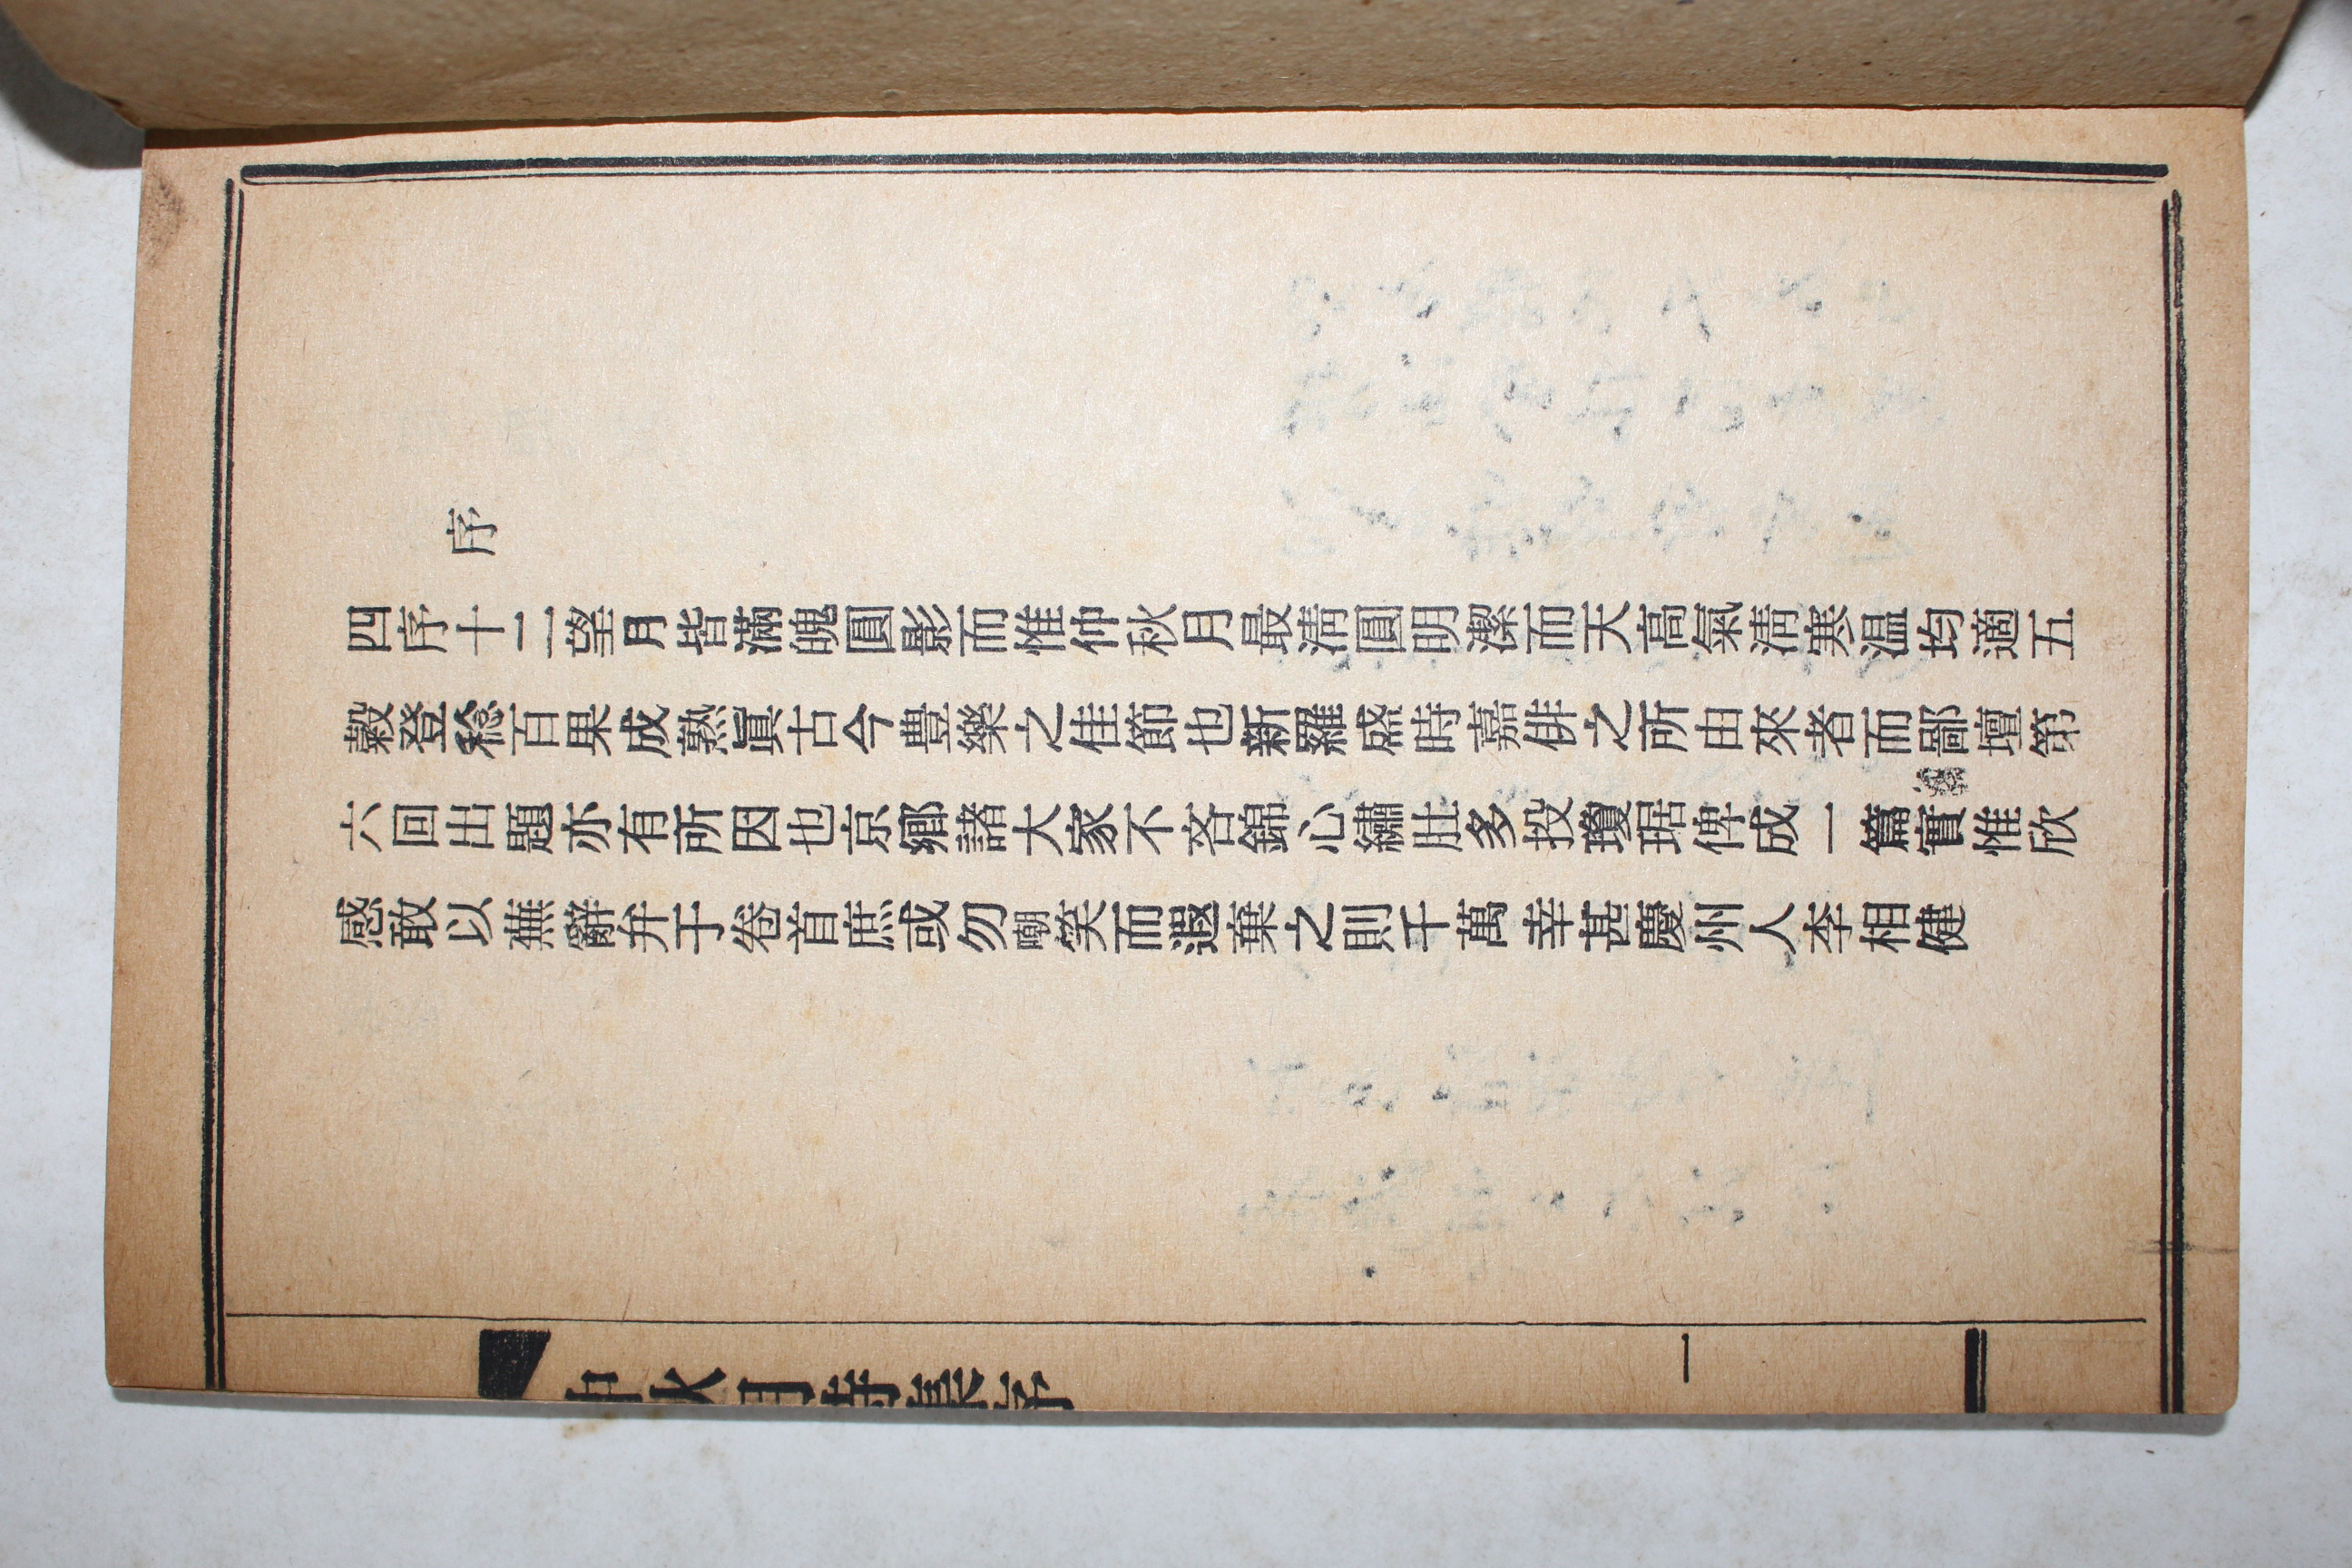 序
四序十二望月皆滿魄圓影而惟仲秋月最淸圓明潔而天高氣淸寒温均適五
穀登稔百果成熟眞古今豊樂之佳節也新羅盛時嘉俳之所由來者而鄙壇第
六回出題亦有所因也京鄉諸大家不吝錦心繡肚多投瓊琚俾成一篇實惟欣
感敢以蕪辭弁于卷首庶或勿嘲笑而遐棄之則千萬幸甚慶州人李相健
中秋月詩集序
一